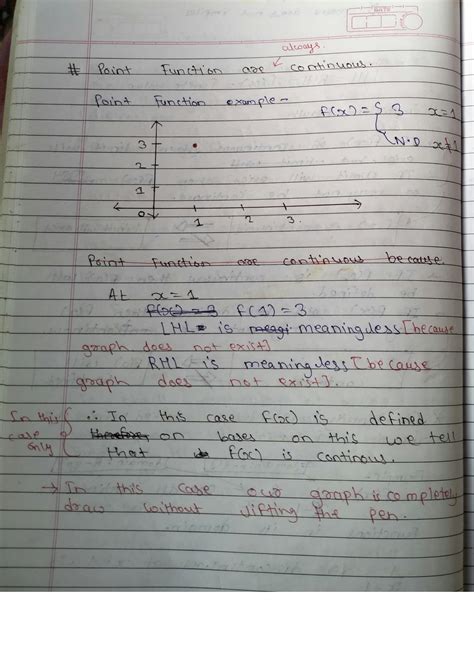 always.
# Point Function are continuous.
Point Function example -
f(x) = { 3 x=1
N.D x≠1
3
2
1
0 1 2 3.
Point Function are continuous because
At x=1
f(x) = 3 f(1) = 3
LHL is meaningless [because
graph does not exist]
RHL is meaningless [because
graph does not exist].
In this case only { ∴ In this case f(x) is defined
therefore on bases on this we tell
that f(x) is continous.
→ In this case our graph is completely
draw without lifting the pen.